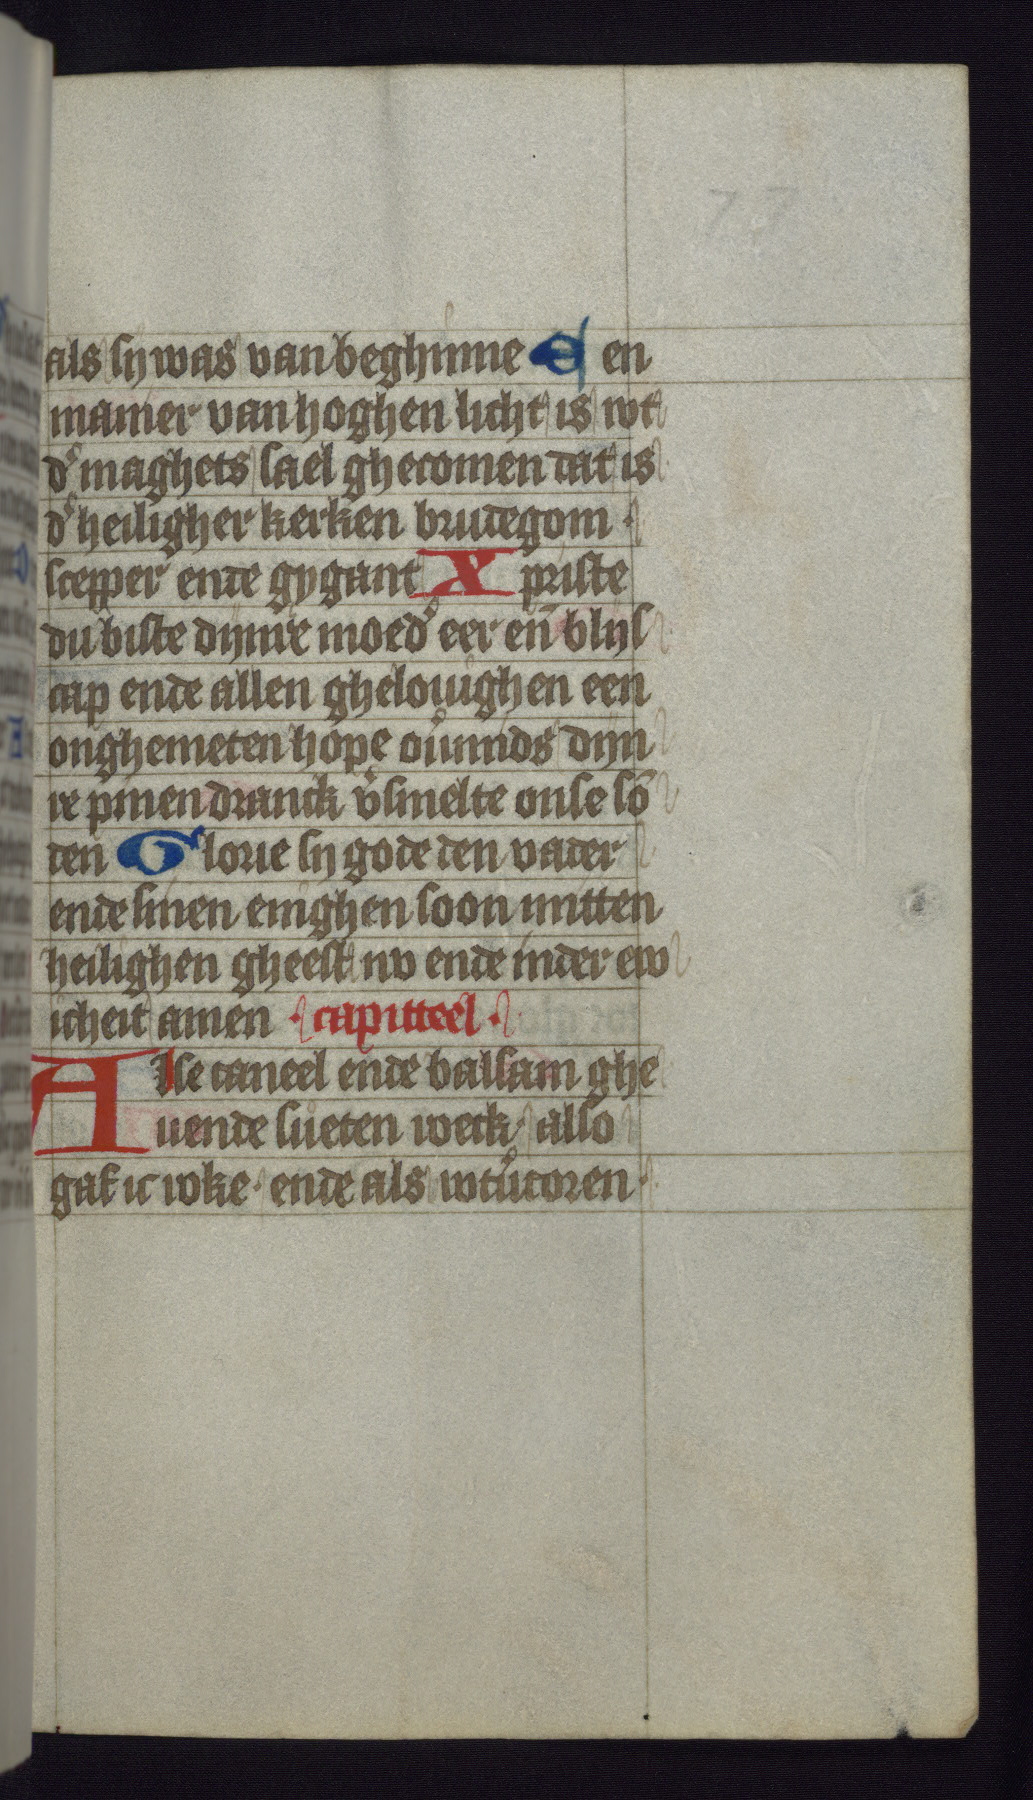 77
als sy was van beghinne Een
manier van hoghen licht is wt
d' maghets sael ghecomen dat is
d' heiligher kerken brudegom ·
scepper ende gygant Xpriste
du biste dijnre moed' eer en̄ blijs
cap ende allen ghelouighen een
onghemeten hope ouͦmids dijn
re pͥmen dranck vͦsmelte onse sō
den Glorie sy gode den vader
ende sinen enighen soon mitten
heilighen gheest nv ende in der ew
icheit amen · capitteel ·
Alse caneel ende balsam ghe
uende sueten roeck · also
gaf ic roke · ende als wtuͦcoren ·